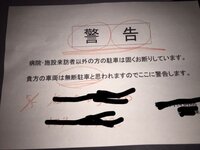 警告
病院・施設来訪者以外の方の駐車は固くお断りしています。
貴方の車両は無断駐車と思われますのでここに警告します。